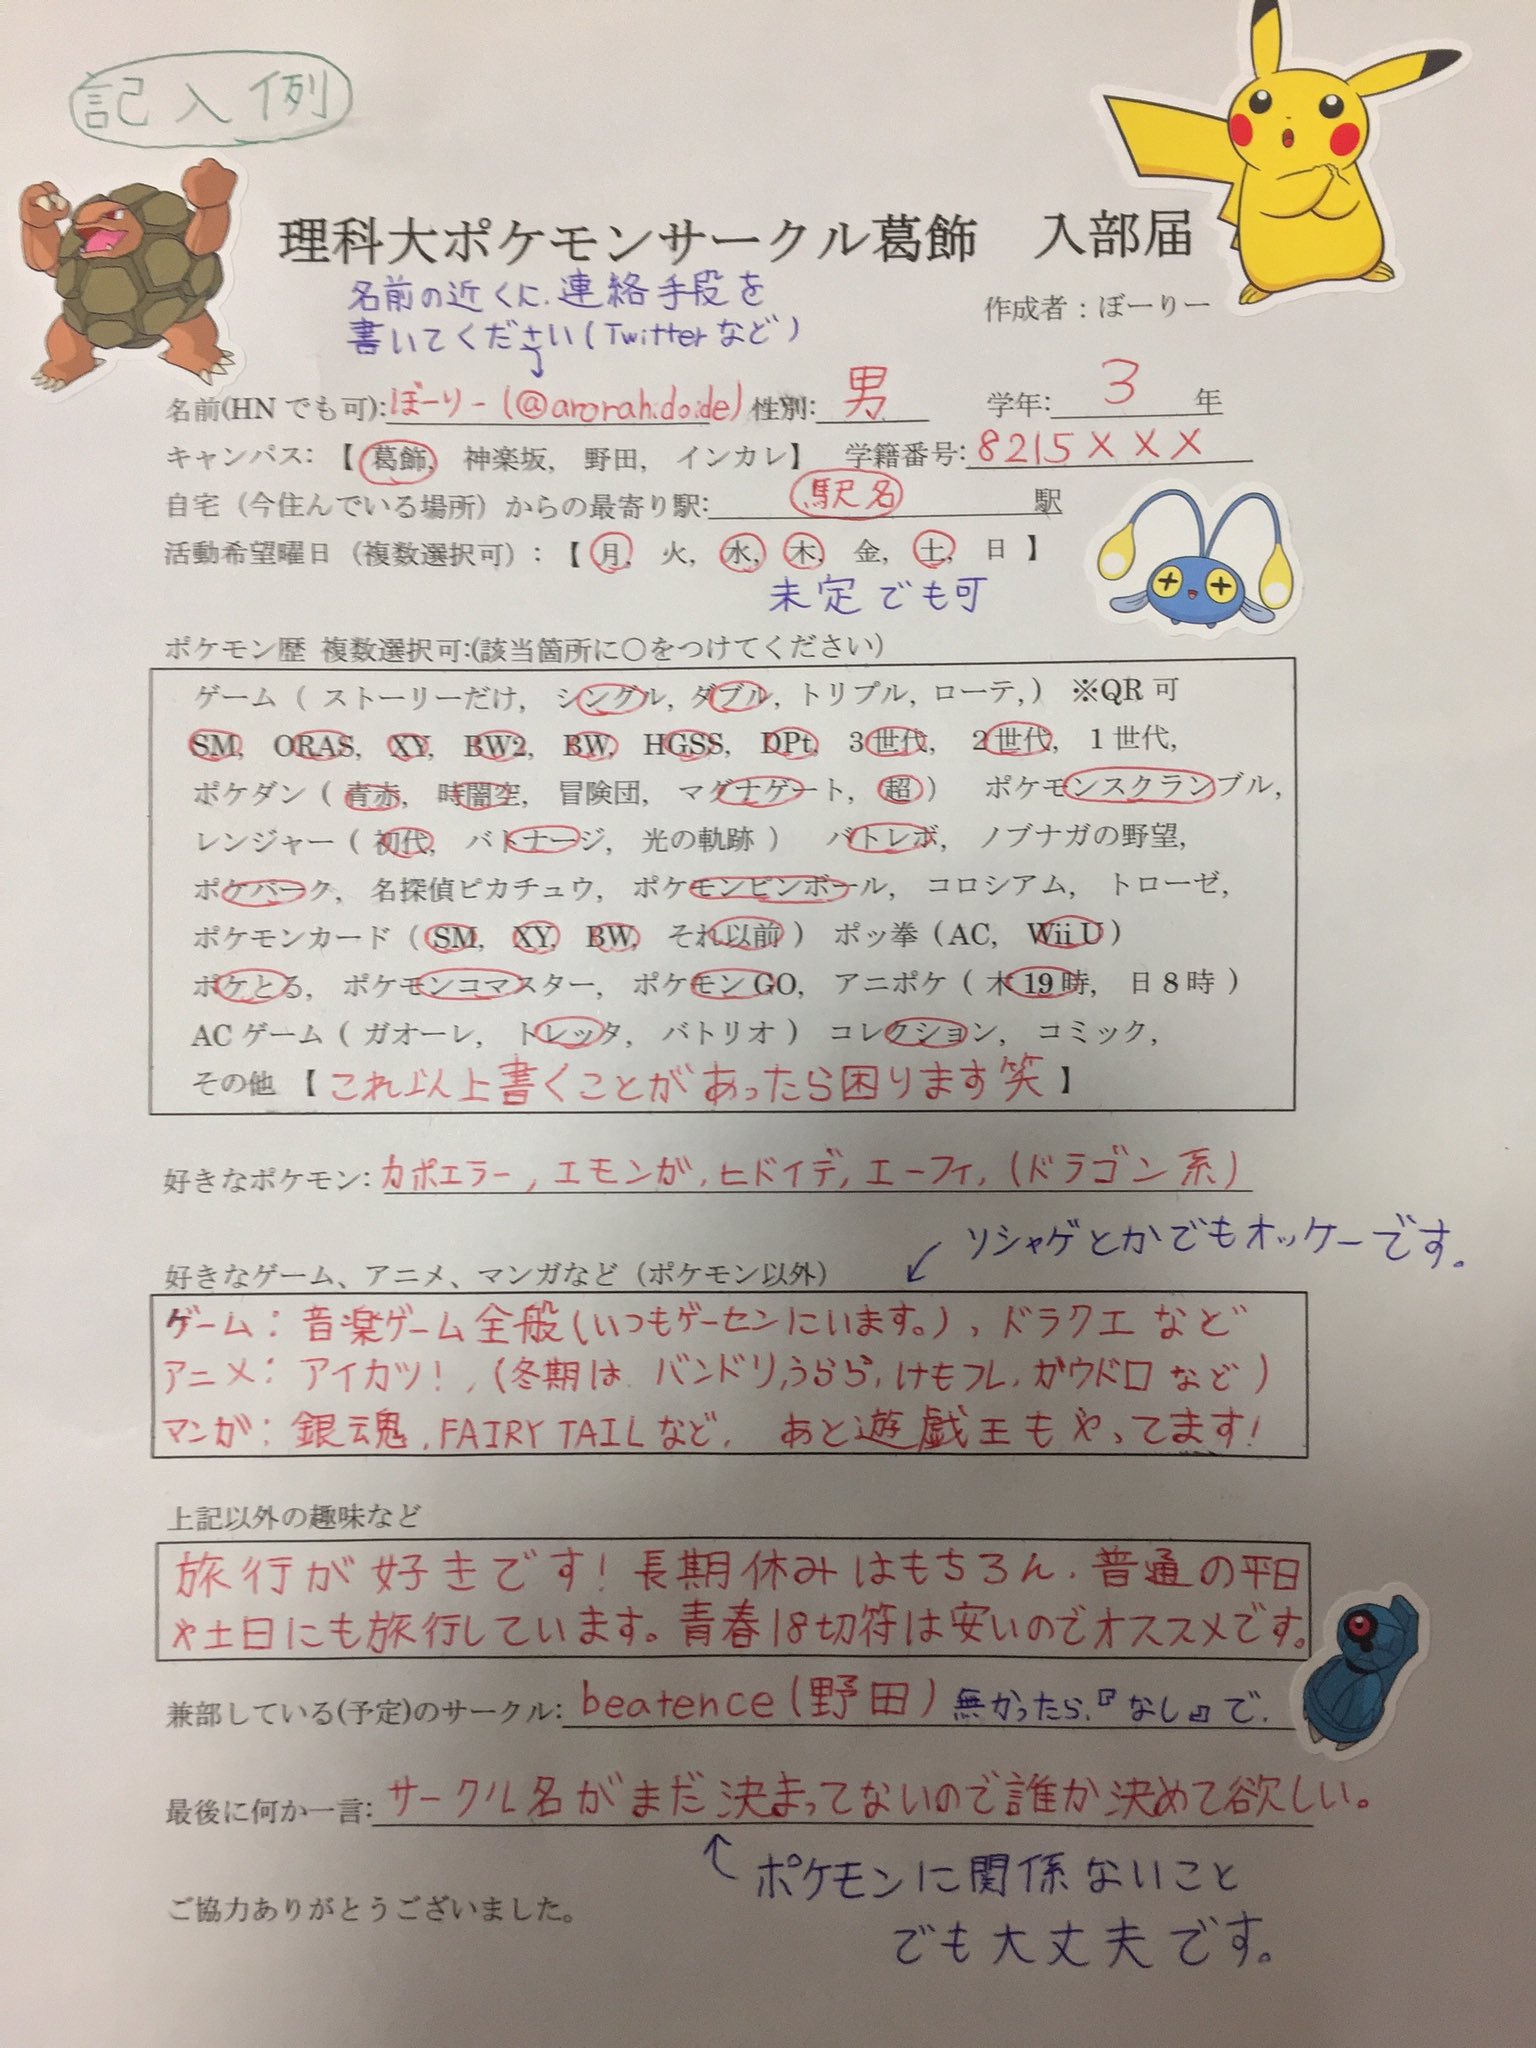 記入例
理科大ポケモンサークル葛飾　入部届
名前の近くに、連絡手段を
書いてください(Twitterなど)
作成者：ぼーりー
名前(HNでも可):ぼーりー(@arorah.do.de) 性別:男　学年:3年
キャンパス:【葛飾, 神楽坂, 野田, インカレ】　学籍番号:8215×××
自宅（今住んでいる場所）からの最寄り駅:駅名　駅
活動希望曜日（複数選択可）:【月, 火, 水, 木, 金, 土, 日】
未定でも可
ポケモン歴 複数選択可:(該当箇所に○をつけてください)
ゲーム（ ストーリーだけ, シングル, ダブル, トリプル, ローテ, ） ※QR可
SM, ORAS, XY, BW2, BW, HGSS, DPt, 3世代, 2世代, 1世代,
ポケダン（ 青赤, 時闇空, 冒険団, マグナゲート, 超 ） ポケモンスクランブル,
レンジャー（ 初代, バトナージ, 光の軌跡 ） バトレボ, ノブナガの野望,
ポケパーク, 名探偵ピカチュウ, ポケモンピンボール, コロシアム, トローゼ,
ポケモンカード（ SM, XY, BW, それ以前 ） ポッ拳（AC, Wii U）
ポケとる, ポケモンコマスター, ポケモンGO, アニポケ（ 木19時, 日8時 ）
ACゲーム（ ガオーレ, トレッタ, バトリオ ） コレクション, コミック,
その他【これ以上書くことがあったら困ります笑】
好きなポケモン:カポエラー, エモンガ, ヒドイデ, エーフィ, (ドラゴン系)
ソシャゲとかでもオッケーです。
好きなゲーム、アニメ、マンガなど（ポケモン以外）
ゲーム: 音楽ゲーム全般(いつもゲーセンにいます。), ドラクエなど
アニメ: アイカツ!, (冬期は バンドリ, うらら, けもフレ, ガヴドロなど)
マンガ: 銀魂, FAIRY TAILなど, あと遊戯王もやってます!
上記以外の趣味など
旅行が好きです! 長期休みはもちろん、普通の平日
や土日にも旅行しています。青春18切符は安いのでオススメです。
兼部している(予定)のサークル:beatence(野田) 無かったら、『なし』で、
最後に何か一言:サークル名がまだ決まってないので誰か決めて欲しい。
ポケモンに関係ないこと
でも大丈夫です。
ご協力ありがとうございました。